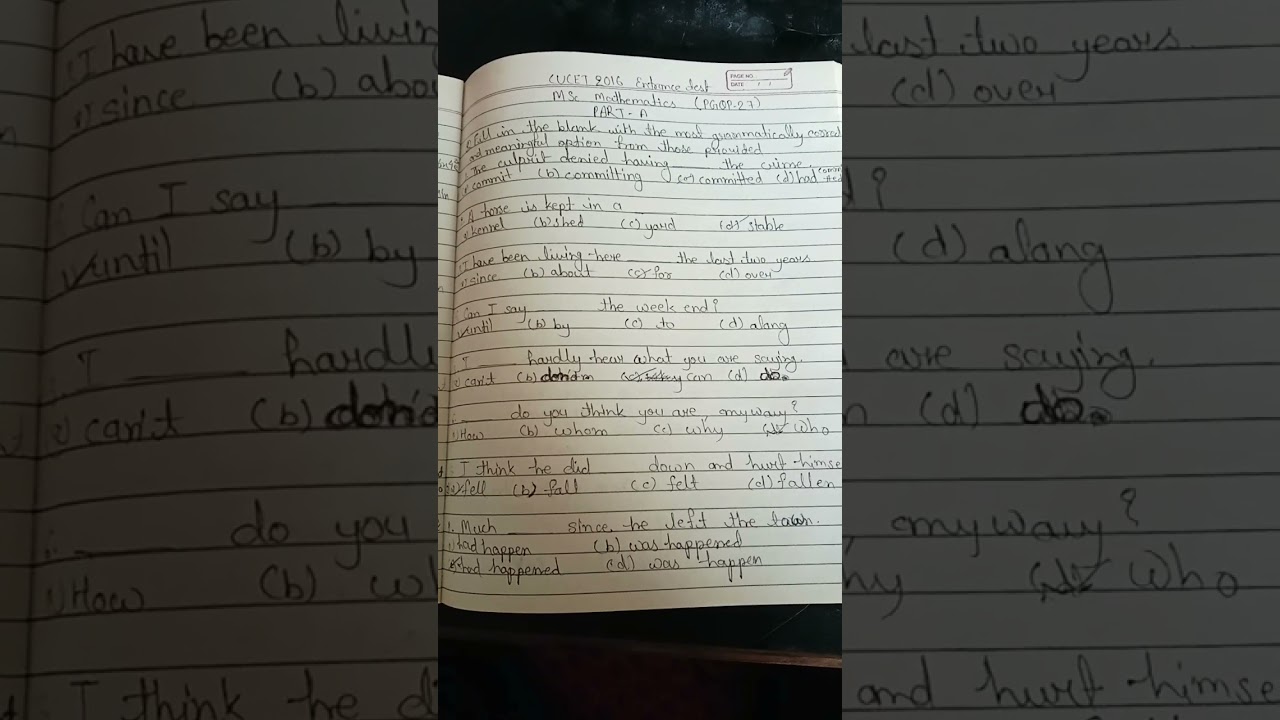 CUCET 2016 Entrance test
PAGE NO.
DATE
MSc Mathematics (PGQP-27)
PART-A
Fill in the blank with the most grammatically correct
and meaningful option from those provided
The culprit denied having ___ the crime.
commit (b) committing (c) committed (d) had
A horse is kept in a ___
kennel (b) shed (c) yard (d) stable
I have been living here ___ the last two years.
since (b) about (c) for (d) over
Can I say ___ the week end?
until (b) by (c) to (d) alang
I ___ hardly hear what you are saying.
can't (b) (c) can (d) do.
___ do you think you are, anyway?
How (b) whom (c) why (d) Who
I think he did ___ down and hurt himse
fell (b) fall (c) felt (d) fallen
Much ___ since he left the town.
had happen (b) was happened
had happened (d) was happen